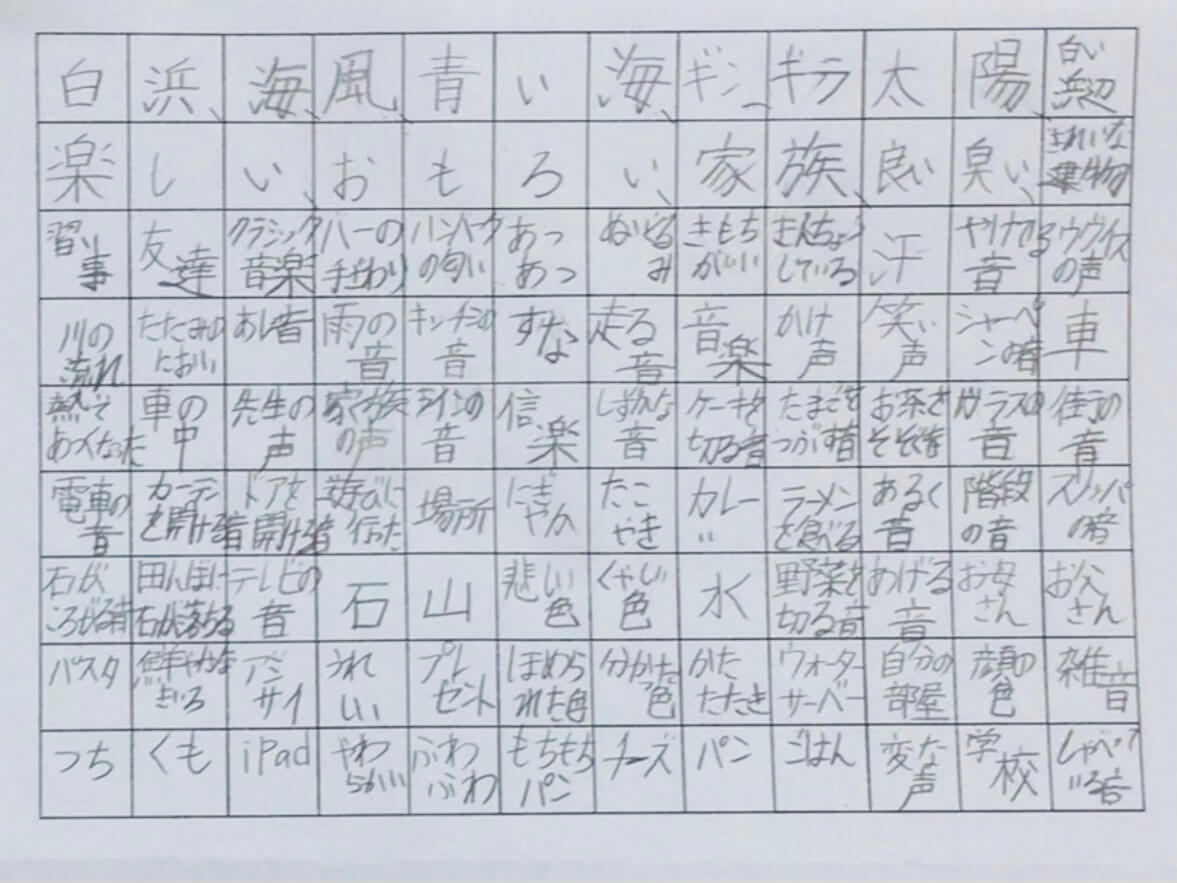 白 浜、 海、 風、 青 い 海、 ギン、 ギラ 太 陽、 白い浜辺
楽 し い、 お も ろ い、 家 族、 良い 臭い、 きれいな建物
習い事 友達 クラシック音楽 バーの手ざわり ハンバーグの匂い あっあつ ぬいぐるみ きもちがいい きんちょうしている 汗 やけてる音 ウグイスの声
川の流れ たたみのにおい あし音 雨の音 キッチンの音 すな 走る音 音楽 かけ声 笑い声 シャーペンの音 車
熱であつくなった 車の中 先生の声 家族の声 ラインの音 信楽 しずかな音 ケーキを切る音 たまごをつぶす音 お茶をそそぐ音 ガラスの音 街の音
電車の音 カーテンを開ける音 ドアを開ける音 遊びに行った 場所 にぎやか たこやき カレー ラーメンを食べる あるく音 階段の音 スリッパの音
石がころがる音 田んぼに石が落ちる テレビの音 石 山 悲しい色 くやしい色 水 野菜を切る音 あげる音 お母さん お父さん
パスタ 鮮やかなきいろ アジサイ うれしい プレゼント ほめられた色 分かった色 かたたたき ウォーターサーバー 自分の部屋 顔の色 雑音
つち くも iPad やわらかい ふわふわ もちもちパン チーズ パン ごはん 変な声 学校 しゃべっている音